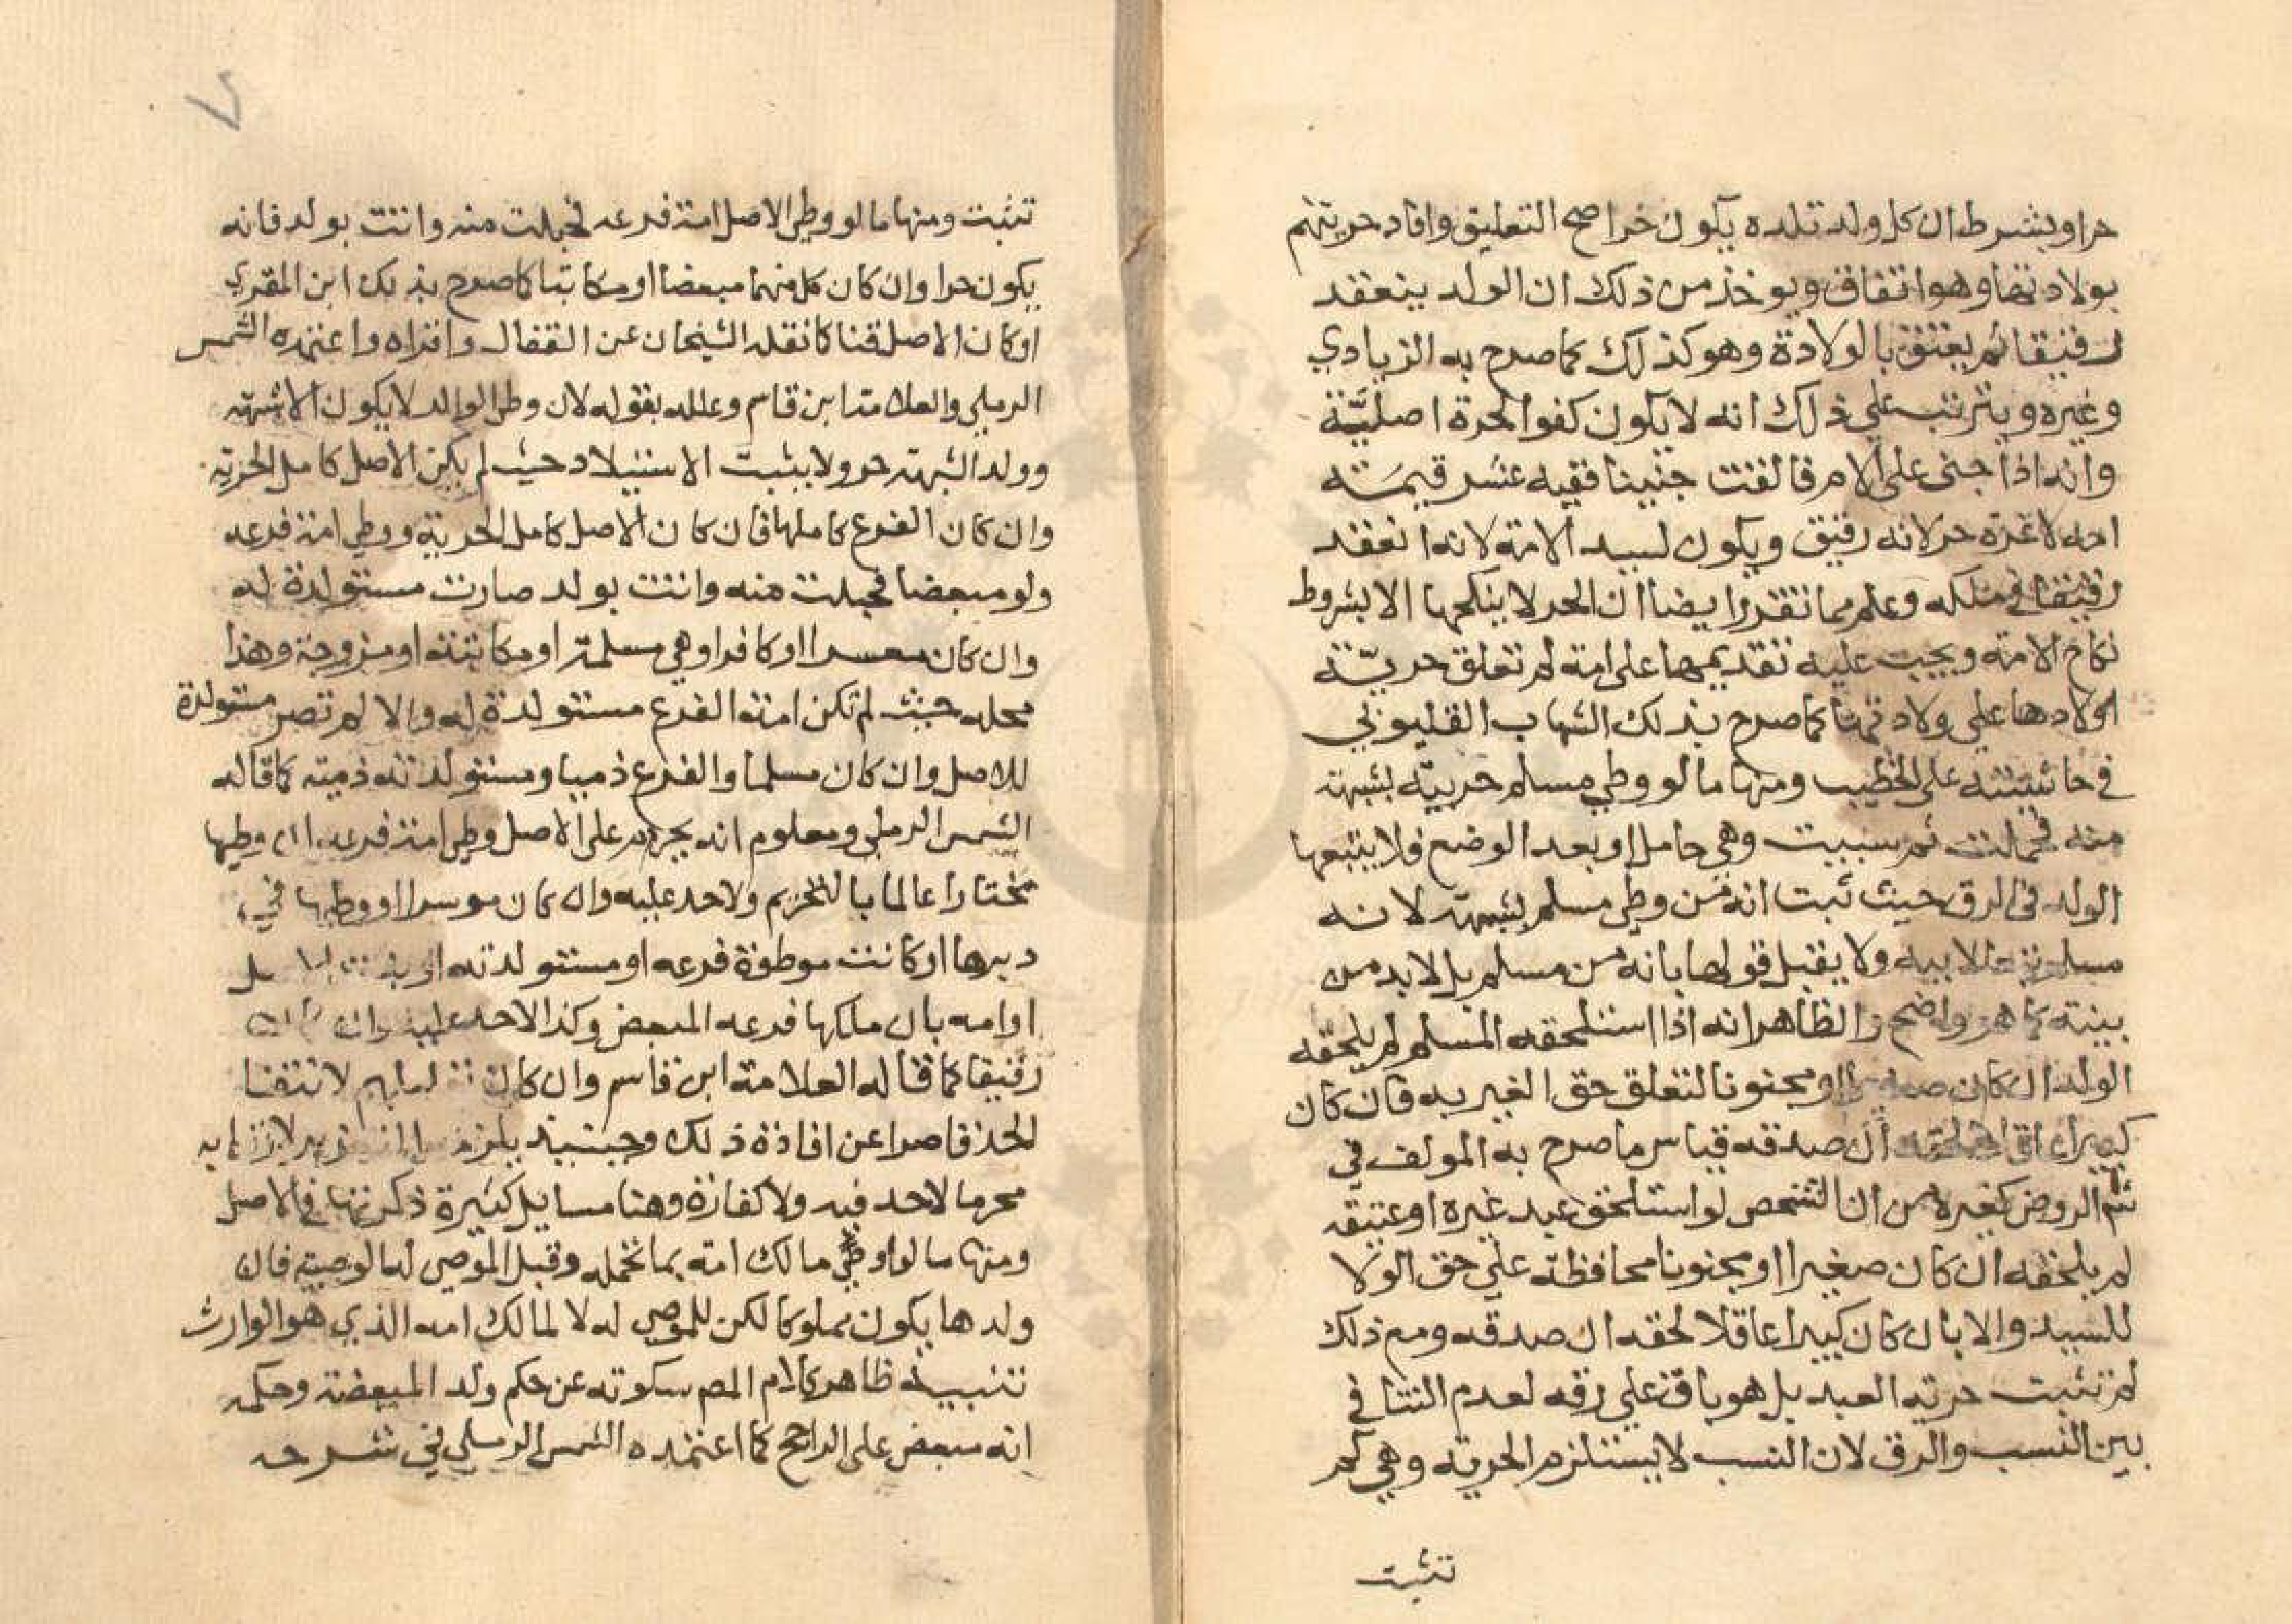 حرا وبشرط ان كل ولد تلده يكون حرا صح التعليق وافاد حريتهم
بولادتها وهو اتفاق ويوخذ من ذلك ان الولد ينعقد
رقيقا ثم يعتق بالولادة وهو كذلك كما صرح به الزيادي
وغيره ويترتب علي ذلك انه لا يكون كفوا لحرة اصلية
وانه اذا جني علي الام فالقت جنينا ففيه عشر قيمته
امه لا غرة حر لانه رقيق ويكون لسيد الامة لانه انعقد
رقيقا في ملكه وعلم مما تقدر ايضا ان الحر لا ينكحها الا بشروط
نكاح الامة ويجب عليه تقديمها علي امة لم تعلق حرية
اولادها علي ولادتها كما صرح بذلك الشهاب القليوبي
في حاشيته علي الخطيب ومنها ما لو وطي مسلم حربية بشبهة
منه فحملت ثم سبيت وهي حامل او بعد الوضع فلا يتبعها
الولد في الرق حيث ثبت انه من وطي مسلم بشبهة لانه
مسلم تبعا لابيه ولا يقبل قولها بانه من مسلم بل لابد من
بينة كما هو واضح والظاهر انه اذا استلحقه المسلم لم يلحقه
الولد ان كان صغيرا او مجنونا لتعلق حق الغير به فان كان
كبيرا عاقلا لحقه ان صدقه قياس ما صرح به المولف في
شرح الروض كغيره من ان الشخص لو استلحق عبد غيره او عتيقه
لم يلحقه ان كان صغيرا او مجنونا محافظة علي حق الولا
للسيد والا بان كان كبيرا عاقلا لحقه ان صدقه ومع ذلك
لم تثبت حرية العبد بل هو باق علي رقه لعدم التنافي
بين النسب والرق لان النسب لا يستلزم الحرية وهي لم
تثبت
٧
تثبت ومنها ما لو وطي الاصل امة فرعه فحبلت منه واتت بولد فانه
يكون حرا وان كان كل منهما مبعضا او مكاتبا كما صرح بذلك ابن المقري
او كان الاصل قنا كما نقله الشيخان عن القفال واقراه واعتمده الشمس
الرملي والعلامة ابن قاسم وعلله بقوله لان وطي الوالد لا يكون الا شبهة
وولد الشبهة حر ولا يثبت الاستيلاد حيث لم يكن الاصل كامل الحرية
وان كان الفرع كاملها فان كان الاصل كامل الحرية ووطي امة فرعه
ولو مبعضا فحبلت منه واتت بولد صارت مستولدة له
وان كان معسرا او كافرا وهي مسلمة او مكاتبته او مزوجة وهذا
محله حيث لم تكن امة الفرع مستولدة له والا لم تصر مستولدة
للاصل وان كان مسلما والفرع ذميا ومستولدته ذمية كما قاله
الشمس الرملي ومعلوم انه يحرم علي الاصل وطي امة فرعه ان وطيها
مختارا عالما بالتحريم ولا حد عليه وان كان موسرا او وطيها في
دبرها او كانت موطوة فرعه او مستولدته او
او امه بان ملكها فرعه المبعض وكذا لا حد عليه وان كان
رقيقا كما قاله العلامة ابن قاسم وان كان لانتفا
الحد قاصرا عن افادة ذلك وحينيذ يلزمه
محرما لا حد فيه ولا كفارة وهنا مسايل كثيرة ذكرتها في الاصل
ومنها ما لو اوصي مالك امة بما تحمله وقبل الموصي له الوصية فان
ولدها يكون مملوكا لكن للموصي له لا لمالك امه الذي هو الوارث
تنبيه ظاهر كلام المص سكوته عن حكم ولد المبعضة وحكمه
انه مبعض علي الراجح كما اعتمده الشمس الرملي في شرحه